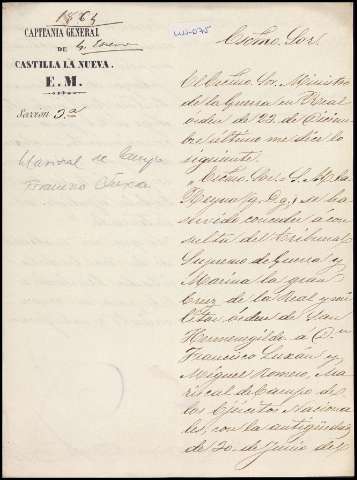 1864
CAPITANIA GENERAL
DE
CASTILLA LA NUEVA.
E. M.
Seccion 3.a
Mariscal de Campo
Francisco
Excmo. Sor.
El Excmo. Sor. Ministro
de la Guerra en Real
orden de 22 de Diciem-
bre ultimo me dice lo
siguiente.
"Excmo. Sor.: S. M. la
Reyna (q. D. g.) se ha
servido conceder a con-
sulta del Tribunal
Supremo de Guerra y
Marina la gran
Cruz de la Real y mi-
litar órden de San
Hermenegildo á D.n
Francisco Luxán y
Miguez Romero, Ma-
riscal de Campo de
los Ejércitos Naciona-
les, con la antigüedad
de 20 de Junio de